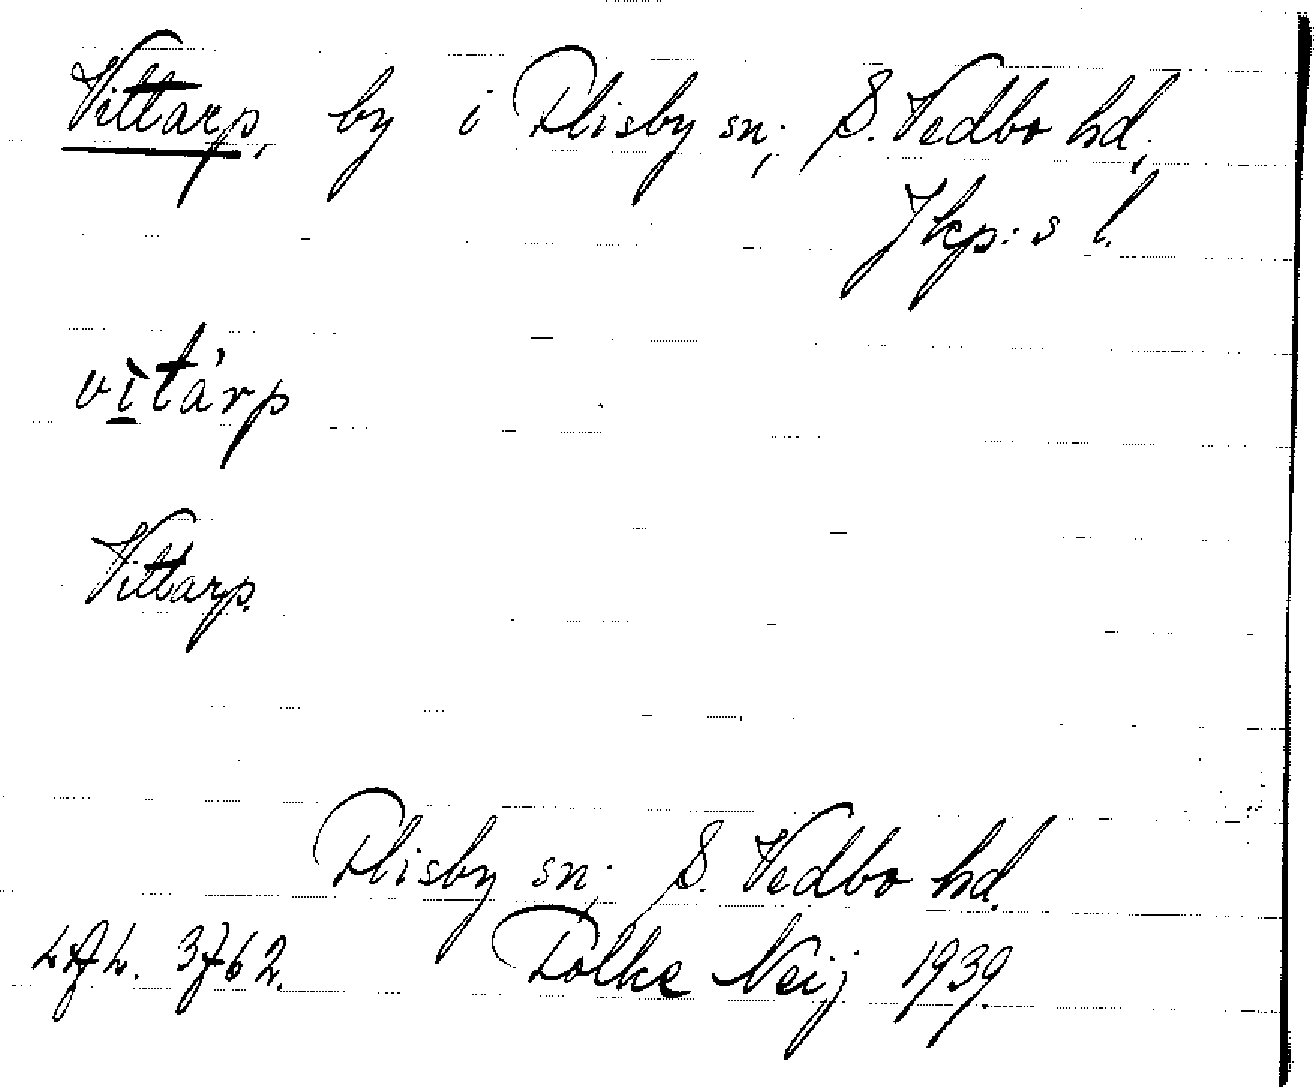 Vittarp, by i Flisby sn; S. Vedbo hd,
Jkp:s l.
vìtárp
Vittarp.
Flisby sn; S. Vedbo hd.
3762. Folke Neij 1939.